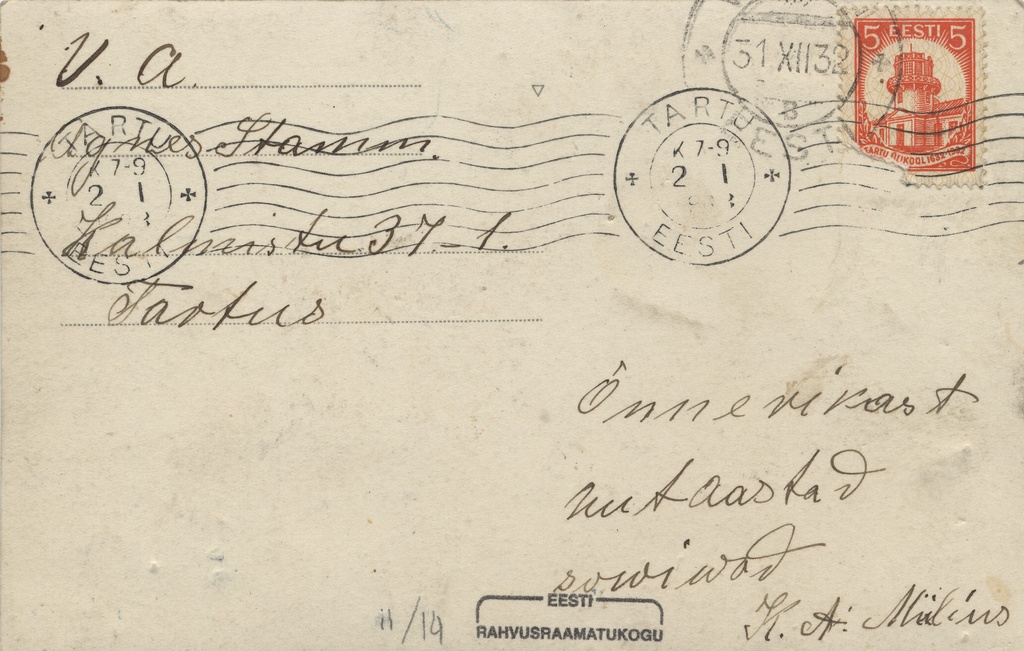 V. A.
Agnes Stamm.
Kalmistu 37-1.
Tartus
TARTU
K 7-9
2 I
EESTI
TARTU
K 7-9
2 I
EESTI
31 XII 32
B
EESTI
5 EESTI 5
TARTU ÜLIKOOL 1632-1932
Õnnerikast
uutaastad
sowiwad
K. A. Miilius
11/14
EESTI
RAHVUSRAAMATUKOGU